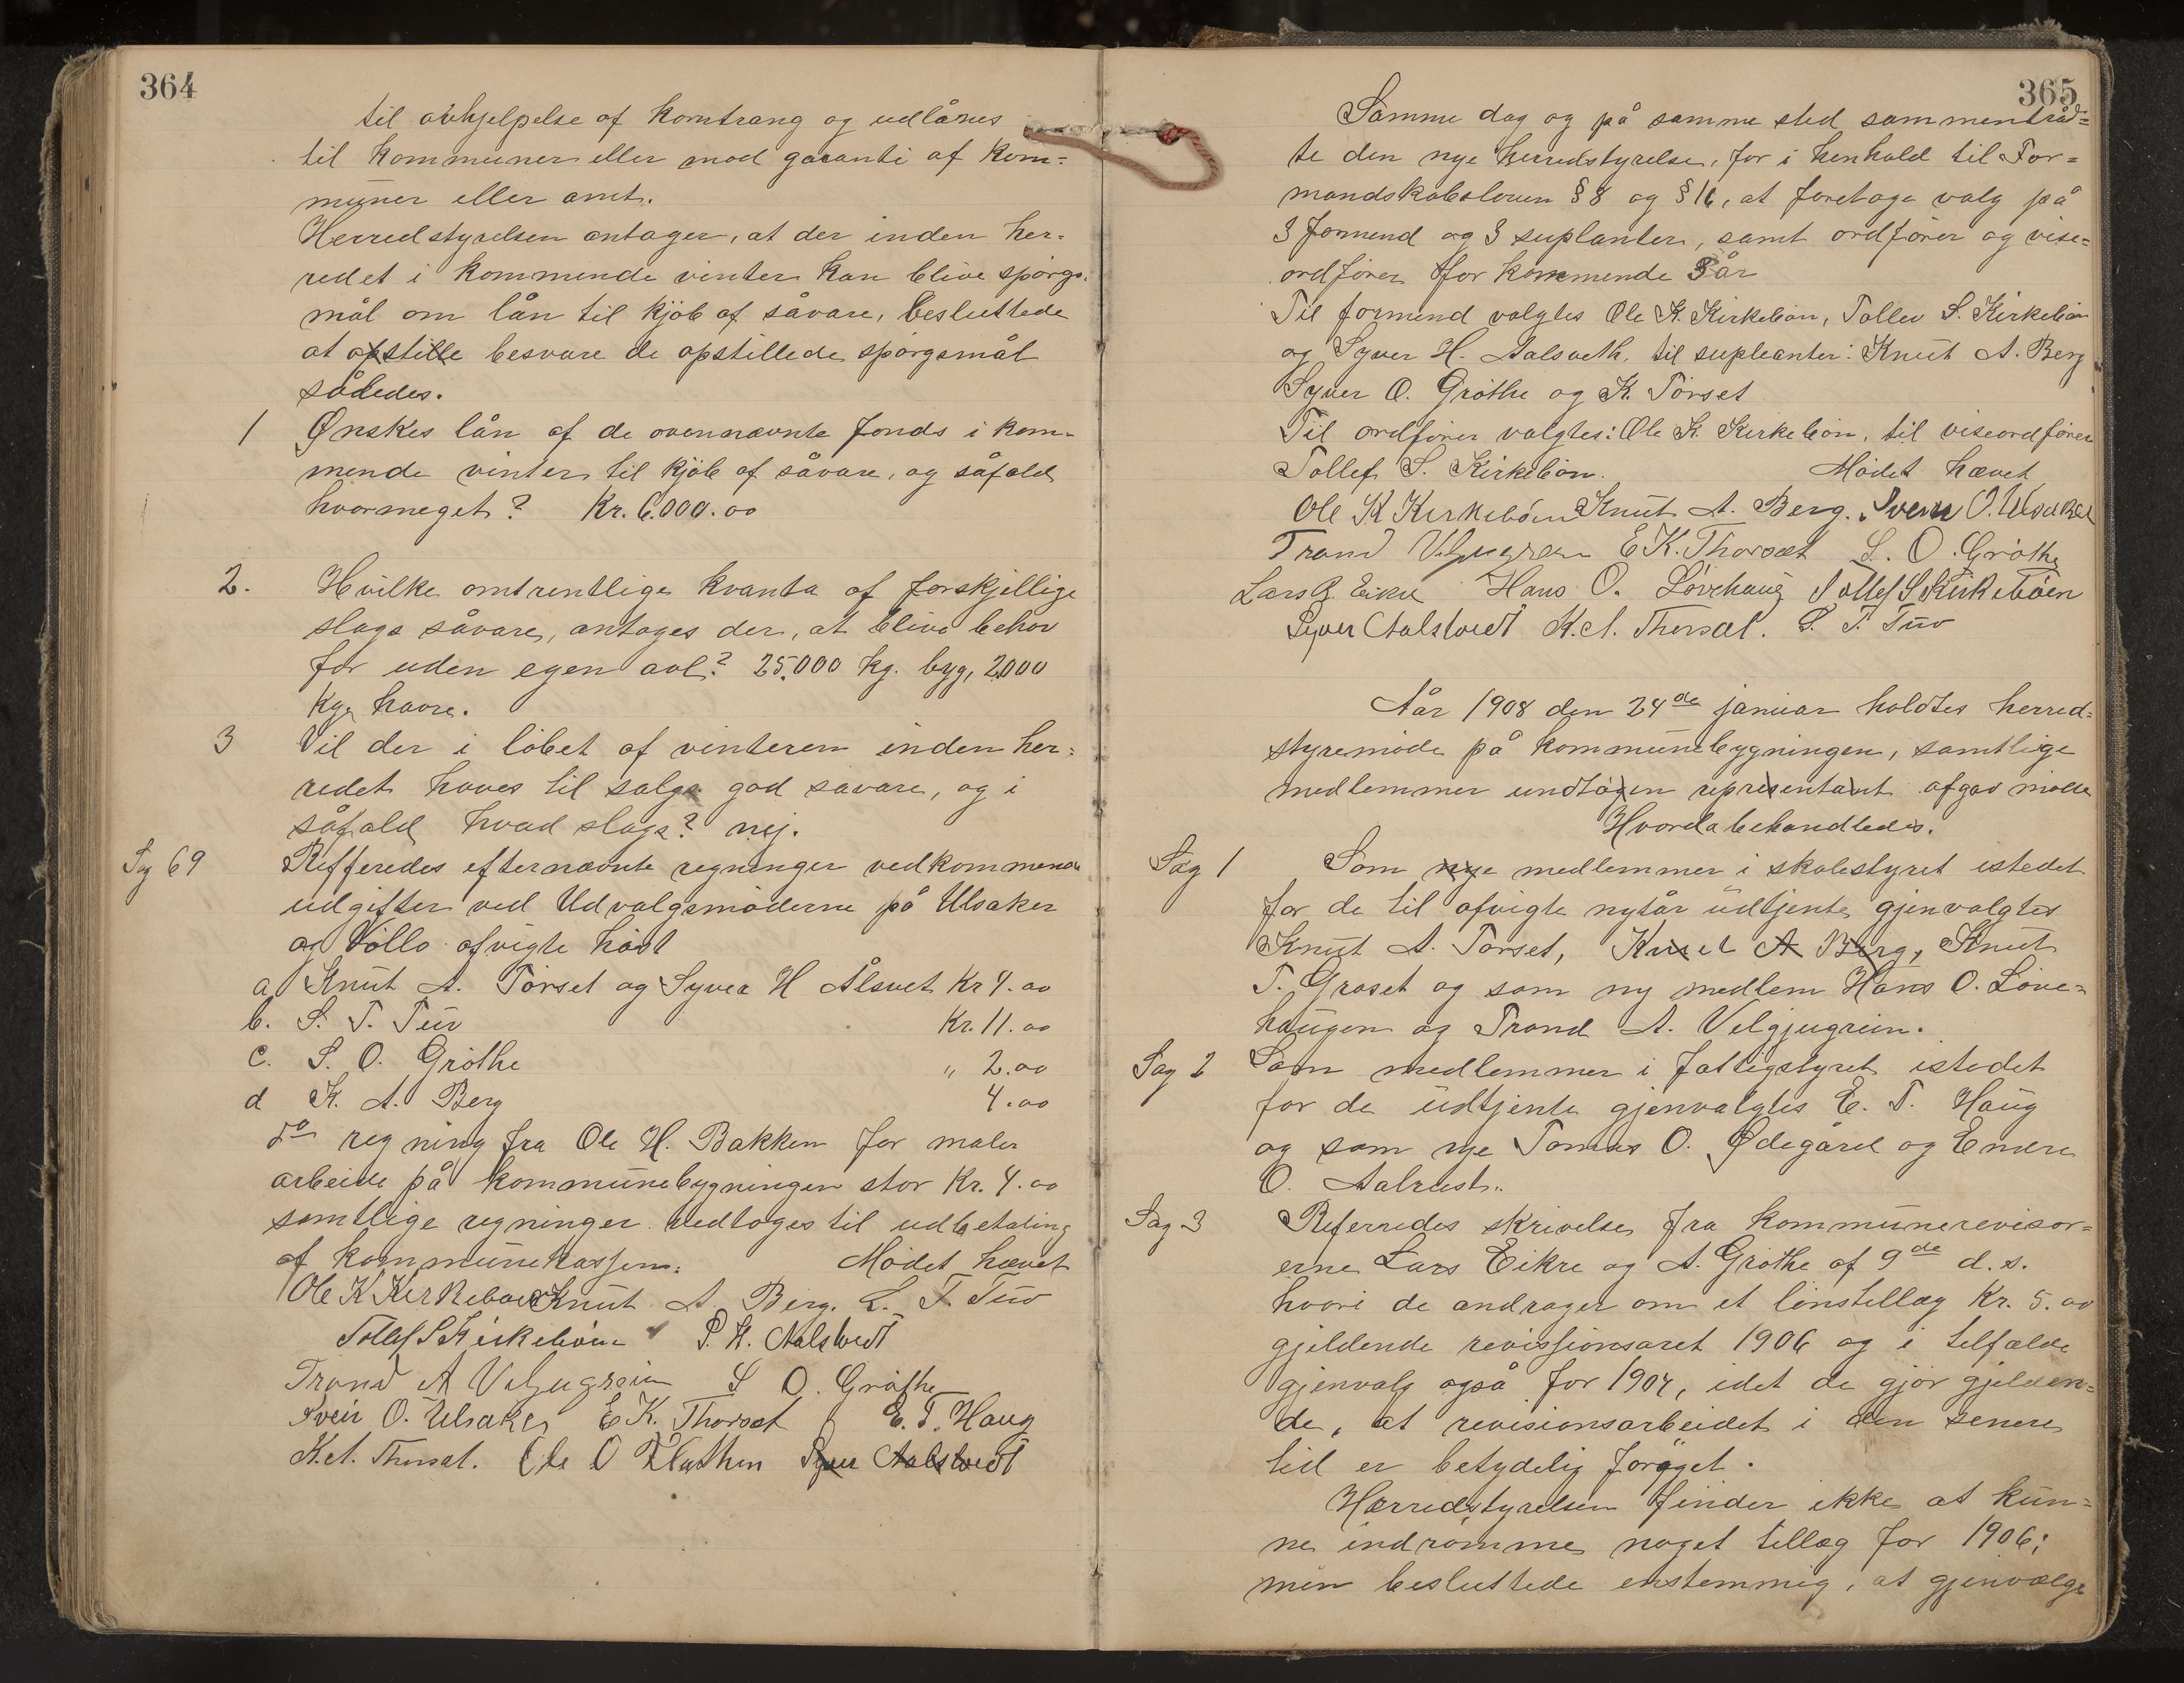 364
til avhjelpelse af korntrang og udlånes
til kommuner eller mod garanti af kom=
muner eller amt.
Herredstyrelsen antager, at der inden her=
redet i kommende vinter kan blive spørgs=
mål om lån til kjøb af såvare, besluttede
at opstille besvare de opstillede spørgsmål
således.
1 Ønskes lån af de ovennævnte fonds i kom=
mende vinter til kjøb af såvare, og såfald
hvormeget? Kr. 6.000.00
2. Hvilke omtrentlige kvanta af forskjellige
slags såvare, antages der, at blive behov
for uden egen avl? 25.000 kg. byg, 2000
kg. havre.
3 Vil der i løbet af vinteren inden her=
redet haves til salgs god såvare, og i
såfald hvad slags? nej.
Sag 69 Refferedes efternævnte regninger vedkommende
udgifter ved Udvalgsmøderne på Ulsaker
og Vøllo afvigte høst
a Knut A. Tørset og Syver H Ålsvet Kr 4.00
b. S. T. Tuv Kr. 11.00
c. S. O. Grøthe " 2.00
d K. A. Berg 4.00
do regning fra Ole H. Bakken for maler
arbeide på kommunebygningen stor Kr. 4.00
samtlige regninger vedtoges til udbetaling
af kommunekassen. Mødet hævet
Ole K Kirkebøen Knut A. Berg. S. T. Tuv
Tollef S Kirkebøen S. H. Aalstvedt
Trond A Velgugrein S O. Grøthe
Svein O. Ulsaker E K. Thorset E. T. Haug
K. A. Thorset. Ole O Flathen Syver Aalstvedt
365
Samme dag og på samme sted sammentråd=
te den nye herredstyrelse, for i henhold til For=
mandskabsloven § 8 og § 16, at foretage valg på
3 formend og 3 suplanter, samt ordfører og vise=
ordfører for kommende 3 år
Til formend valgtes Ole K. Kirkebøn, Tollev S. Kirkebøn
og Syver H. Aalsveth, til supleanter: Knut A. Berg
Syver O. Grøthe og K. Tørset
Til ordfører valgtes: Ole K. Kirkebøn, til viseordfører
Tollef S. Kirkebøn. Mødet hævet
Ole K Kirkebøen Knut A. Berg. Svein O. Ulsaker
Trond Velgugrein E K. Thorset S. O. Grøthe
Lars R. Eikre Hans O. Løvehaug Tollef S Kirkebøen
Syver Aalstvedt K. A. Thorset. S. T. Tuv
Aår 1908 den 24de januar holdtes herred=
styremøde på kommunebygningen, samtlige
medlemmer undtagen representant afgav møde
Hvorda behandledes.
Sag 1 Som nye medlemmer i skolestyret istedet
for de til afvigte nytår udtjente gjenvalgtes
Knut A. Tørset, Knut A Berg, Knut
T. Grøset og som ny medlem Hans O. Løve=
haugen og Trond A. Velgjugrein.
Sag 2 Som medlemmer i fattigstyret istedet
for de udtjente gjenvalgtes E. T. Haug
og som nye Tomas O. Ødegård og Endre
O. Aalrust.
Sag 3 Referredes skrivelse fra kommunerevisor=
erne Lars Eikre og A. Grøthe af 9de d. s.
hvori de andrager om et lønstillæg Kr. 5.00
gjeldende revissionsaret 1906 og i tilfælde
gjenvalg også for 1907, idet de gjør gjelden=
de, at revisionsarbeidet i den senere
tid er betydelig forøget.
Herredstyrelsen finder ikke at kun=
ne indrømme noget tillæg for 1906;
men besluttede enstemmig, at gjenvælge